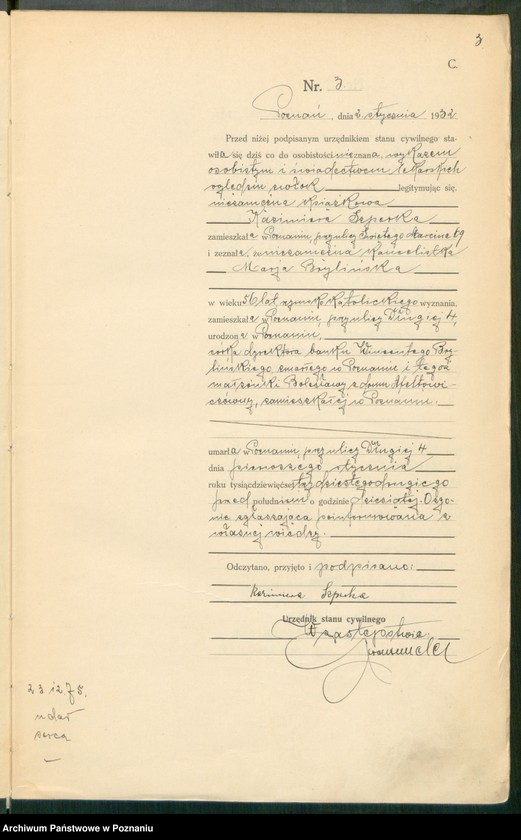 3
C.
Nr. 3
Poznań, dnia 2 stycznia 1932
Przed niżej podpisanym urzędnikiem stanu cywilnego sta-
wiła się dziś co do osobistości nieznana, wykazem
osobistym i świadectwem lekarskich
oględzin zwłok legitymując się,
niezamężna książkowa
Kazimiera Szperka
zamieszkała w Poznaniu, przy ulicy Świętego Marcina 69
i zeznała, że niezamężna kancelistka
Marja Brylińska
w wieku 56 lat, rzymsko katolickiego wyznania,
zamieszkała w Poznaniu, przy ulicy Długiej 4,
urodzona w Poznaniu,
córka dyrektora banku Wincentego Bry-
lińskiego, zmarłego w Poznaniu i tegoż
małżonki Bolesławy z domu
zamieszkałej w Poznaniu.
umarła w Poznaniu, przy ulicy Długiej 4
dnia pierwszego stycznia
roku tysiąc dziewięćset trzydziestego drugiego
przed południem o godzinie dziesiątej. O zgo-
nie zgłaszająca poinformowana z
własnej wiedzy.
Odczytano, przyjęto i podpisano:
Kazimiera Szperka
Urzędnik stanu cywilnego
W zastępstwie:
23.12.75.
udar
serca
Archiwum Państwowe w Poznaniu